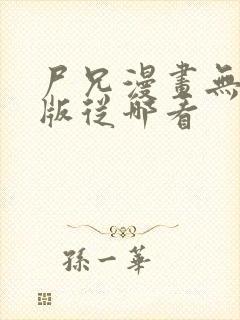 尸兄漫畫無
版從哪看
孫一華